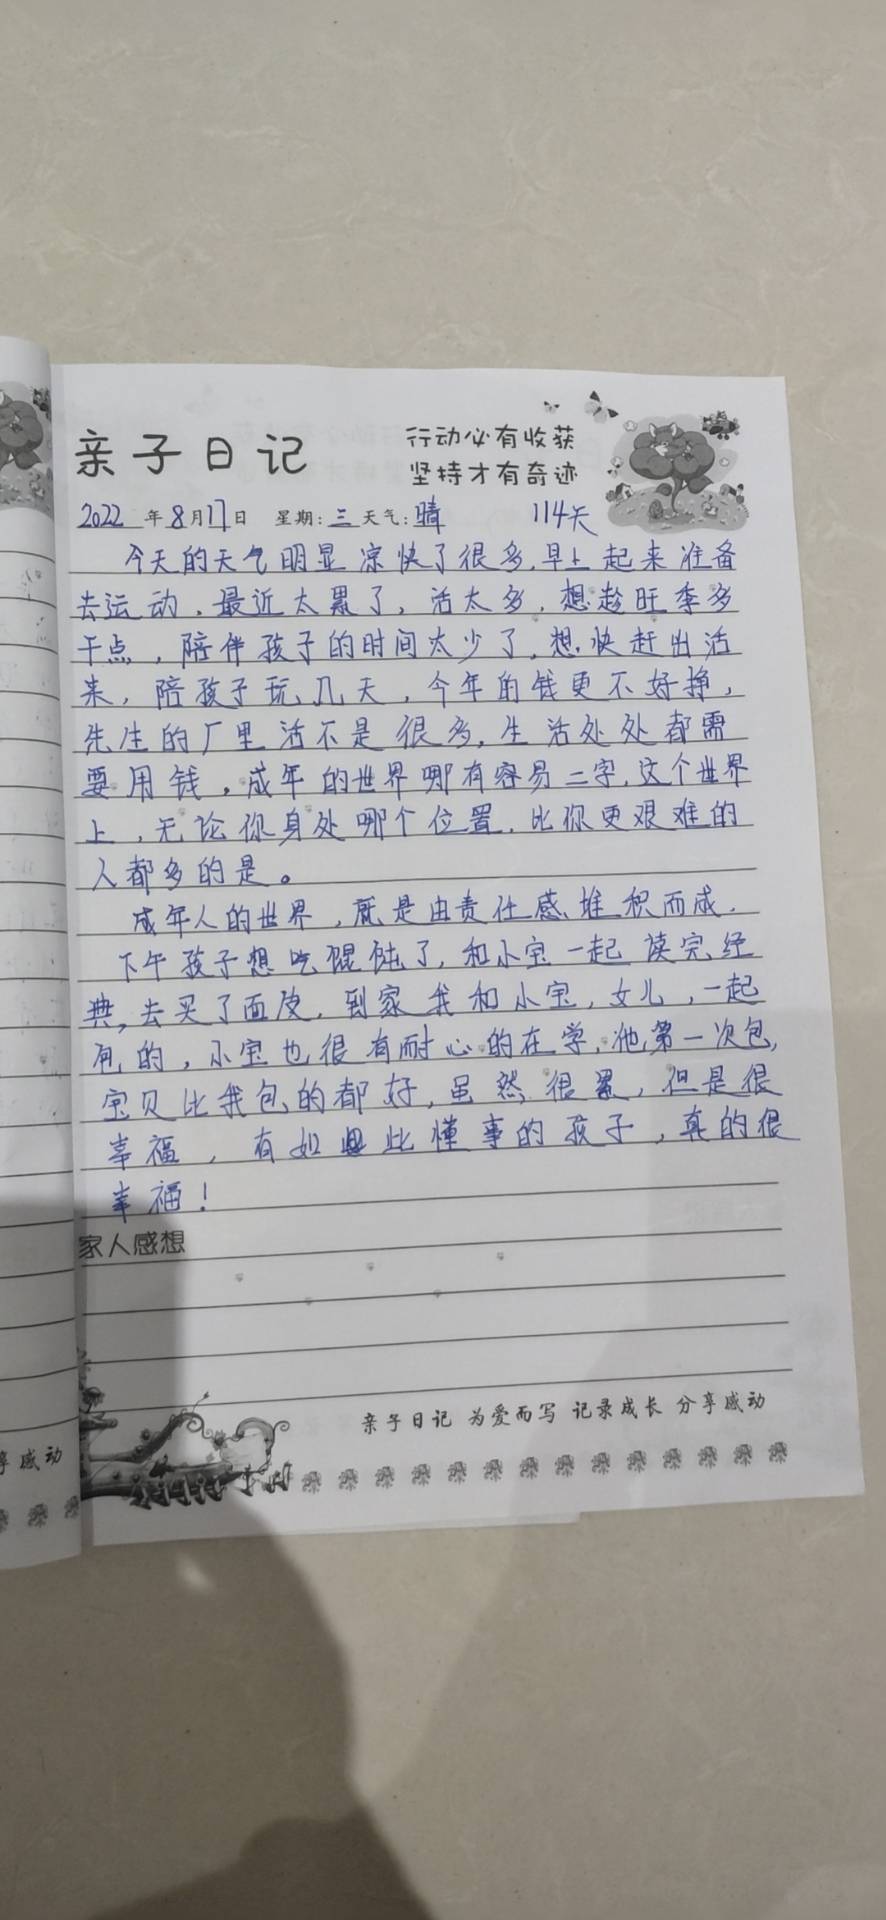 亲子日记
行动必有收获
坚持才有奇迹
2022年8月17日 星期:三 天气:晴 114天
今天的天气明显凉快了很多,早上起来准备
去运动,最近太累了,活太多,想趁旺季多
干点,陪伴孩子的时间太少了,想快赶出活
来,陪孩子玩几天,今年的钱更不好挣,
先生的厂里活不是很多,生活处处都需
要用钱,成年的世界哪有容易二字,这个世界
上,无论你身处哪个位置,比你更艰难的
人都多的是。
成年人的世界,就是由责任感堆积而成.
下午孩子想吃馄饨了,和小宝一起读完经
典,去买了面皮,到家我和小宝,女儿,一起
包的,小宝也很有耐心的在学,他第一次包,
宝贝比我包的都好,虽然很累,但是很
幸福,有如此懂事的孩子,真的很
幸福!
家人感想
亲子日记 为爱而写 记录成长 分享感动
享感动